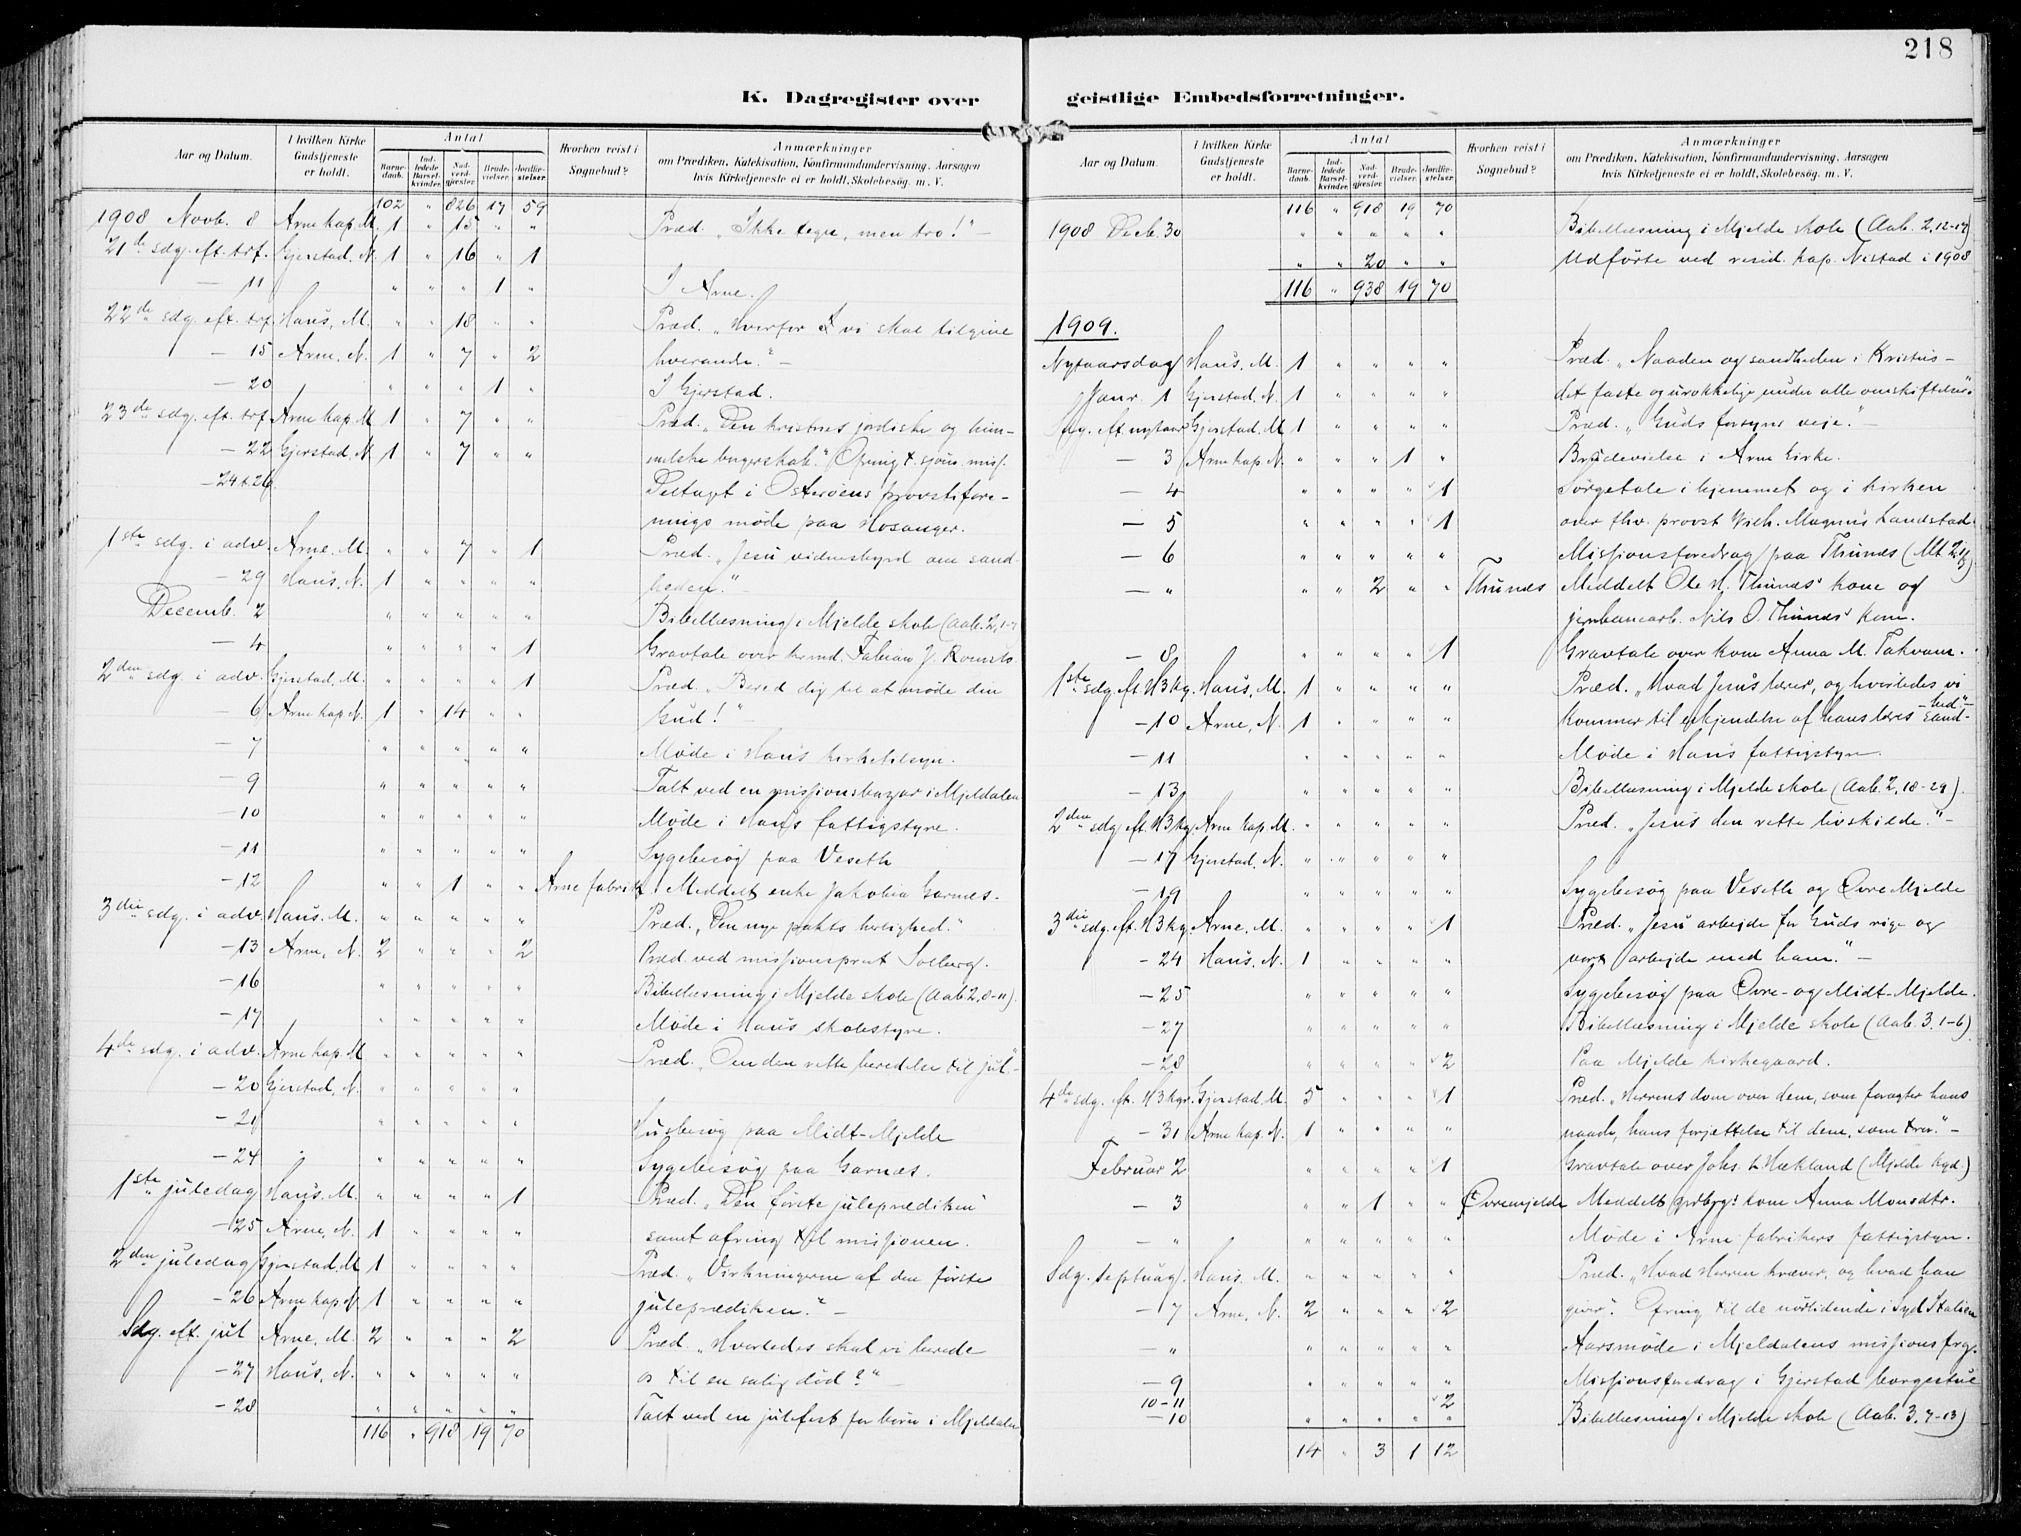 218
K. Dagregister over geistlige Embedsforretninger.
Aar og Datum. I hvilken Kirke Gudstjeneste er holdt. Antal Barnedaab. Indledede Barselkvinder. Nadverdgjester. Brudevielser. Jordfæstelser. Hvorhen reist i Sognebud? Anmærkninger om Prædiken, Katekisation, Konfirmandundervisning, Aarsagen hvis Kirketjeneste ei er holdt, Skolebesøg. m. V.
102 " 826 17 59
1908 Novb. 8 Arne kap. M. 1 " 15 " " Præd. "Ikke tegn, men tro!" –
21de sdg. eft. trf. Gjerstad, N. 1 " 16 " 1
– 11 " " " 1 " I Arne.
22de sdg. eft. trf. Haus, M. " " 18 " " Præd. "Hvorfor vi skal tilgive
– 15 Arne, N. 1 " 7 " 2 hverandre." –
– 20 " " " 1 " I Gjerstad.
23de sdg. eft. trf. Arne kap. M 1 " 7 " " Præd. "Den kristnes jordiske og him-
– 22 Gjerstad, N 1 " 7 " " melske borgerskab." Ofring t. sjøms. miss.
– 24 & 26 Deltaget i Osterøens provstifore-
nings møde paa Hosanger.
1ste sdg. i adv. Arne, M. " " 7 " 1 Præd. "Jesu vidnesbyrd om sand-
– 29 Haus, N. 1 " " " " heden." –
Decemb. 2 " " " " " Bibellæsning i Mjelde skole (Aab. 2, 1-7
– 4 " " " " 1 Gravtale over Fabian J. Romslo
2den sdg. i adv. Gjerstad, M. " " " " 1 Præd. "Bered dig til at møde din
– 6 Arne kap N. 1 " 14 " " Gud!" –
– 7 " " " " " Møde i Haus kirketilsyn.
– 9 " " " " " Talt ved en missionsbazar i Mjeldalen
– 10 " " " " " Møde i Haus fattigstyre.
– 11 " " " " " Sygebesøg paa Veseth
– 12 " " 1 " " Arne fabrik Meddelt enke Jakobia Garnæs.
3die sdg. i adv. Haus. M. " " " " " Præd. "Den nye pakts herlighed."
– 13 Arne, N. 2 " " " 2 Præd. ved missionsprst Solberg.
– 16 " " " " " Bibellæsning i Mjelde skole (Aab. 2, 8-11).
– 17 " " " " " Møde i Haus skolestyre.
4de sdg. i adv. Arne kap. M " " " " " Præd. "Om den rette beredelse til jul" –
– 20 Gjerstad, N. " " " " "
– 21 " " " " " Husbesøg paa Midt-Mjelde
– 24 " " " " " Sygebesøg paa Garnæs.
1ste juledag Haus. M. " " " " 1 Præd. "Den første juleprædiken"
– 25 Arne, N. 1 " " " " samt ofring til missionen.
2den juledag Gjerstad, M 1 " " " " Præd. "Virkningerne af den første
– 26 Arne kap N. 1 " " " " juleprædiken." –
Sdg. eft. jul Arne, M. 2 " " " 2 Præd. "Hvorledes skal vi berede
– 27 Haus, N. " " " " " os til en salig død?" –
– 28 " " " " " Talt ved en julefest for børn i Mjeldalen
116 " 918 19 70
116 " 918 19 70
1908 Decb. 30 " " " " " Bibellæsning i Mjelde skole (Aab. 2, 12-17)
" " 20 " " Udførte ved resid. kap. Nistad i 1908
116 " 938 19 70
1909.
Nytaarsdag Haus. M. 1 " " " " Præd. "Naaden og sandheden i Kristus –
Janr. 1 Gjerstad, N. 1 " " " " det faste og urokkelige under alle omskiftelser".
Sdg. eft. nytaar Gjerstad, M 1 " " " " Præd. "Guds forsyns veje." –
– 3 Arne kap N. " " " 1 " Brudevielse i Arne kirke.
– 4 " " " " 1 Sørgetale i hjemmet og i kirken
– 5 " " " " 1 over fhv. provst Vilh. Magnus Landstad.
– 6 " " " " " Missionsforedrag paa Thunæs (Mt. 2
– " " " 2 " " Thunæs Meddelt Ole N. Thunæs' kone og
jernbanearb. Nils O. Thunæs' kone.
– 8 " " " " 1 Gravtale over kone Anna M. Takvam.
1ste sdg. eft. H3kg. Haus, M. 1 " " " " Præd. "Hvad Jesus lærer, og hvorledes vi
– 10 Arne, N. 1 " " " " kommer til erkjendelse af hans læres sand-
hed" –
– 11 " " " " " Møde i Haus fattigstyre.
– 13 " " " " " Bibellæsning i Mjelde skole (Aab. 2, 18-29).
2den sdg. eft. H3kg Arne kap. M. " " " " " Præd. "Jesus den rette livskilde." –
– 17 Gjerstad, N. " " " " "
– 19 " " " " " Sygebesøg paa Veseth og Øvre Mjelde
3die sdg. eft. H3kg. Arne, M. " " " " 1 Præd. "Jesu arbejde for Guds rige og
– 24 Haus, N. 1 " " " " vort arbejde med ham." –
– 25 " " " " " Sygebesøg paa Øvre- og Midt-Mjelde.
– 27 " " " " " Bibellæsning i Mjelde skole (Aab. 3. 1-6)
– 28 " " " " 2 Paa Mjelde kirkegaard.
4de sdg. eft. H3kgr. Gjerstad, M. 5 " " " 1 Præd. "Herrens dom over dem, som foragter hans
– 31 Arne kap. N. 1 " " " " naade, hans forjættelse til dem, som tror." –
Februar 2 " " " " 1 Gravtale over Johs. L. Hækland (Mjelde kgd.)
– 3 " " 1 " " Øvremjelde Meddelt kone Anna Monsdtr.
– " " " " " " Møde i Arne fabrikers fattigstyre.
Sdg. septuag. Haus. M. " " " " " Præd. "Hvad Herren kræver, og hvad han
– 7 Arne, N. 2 " " " 2 giver". Ofring til de nødlidende i Syd Italien
– " " " " " " Aarsmøde i Mjeldalens missionsfrg.
– 9 " " " " " Missionsforedrag i Gjerstad borgestue
10-11 2
– 10 " " " " " Bibellæsning i Mjelde skole (Aab. 3, 7-13)
14 " 3 1 12